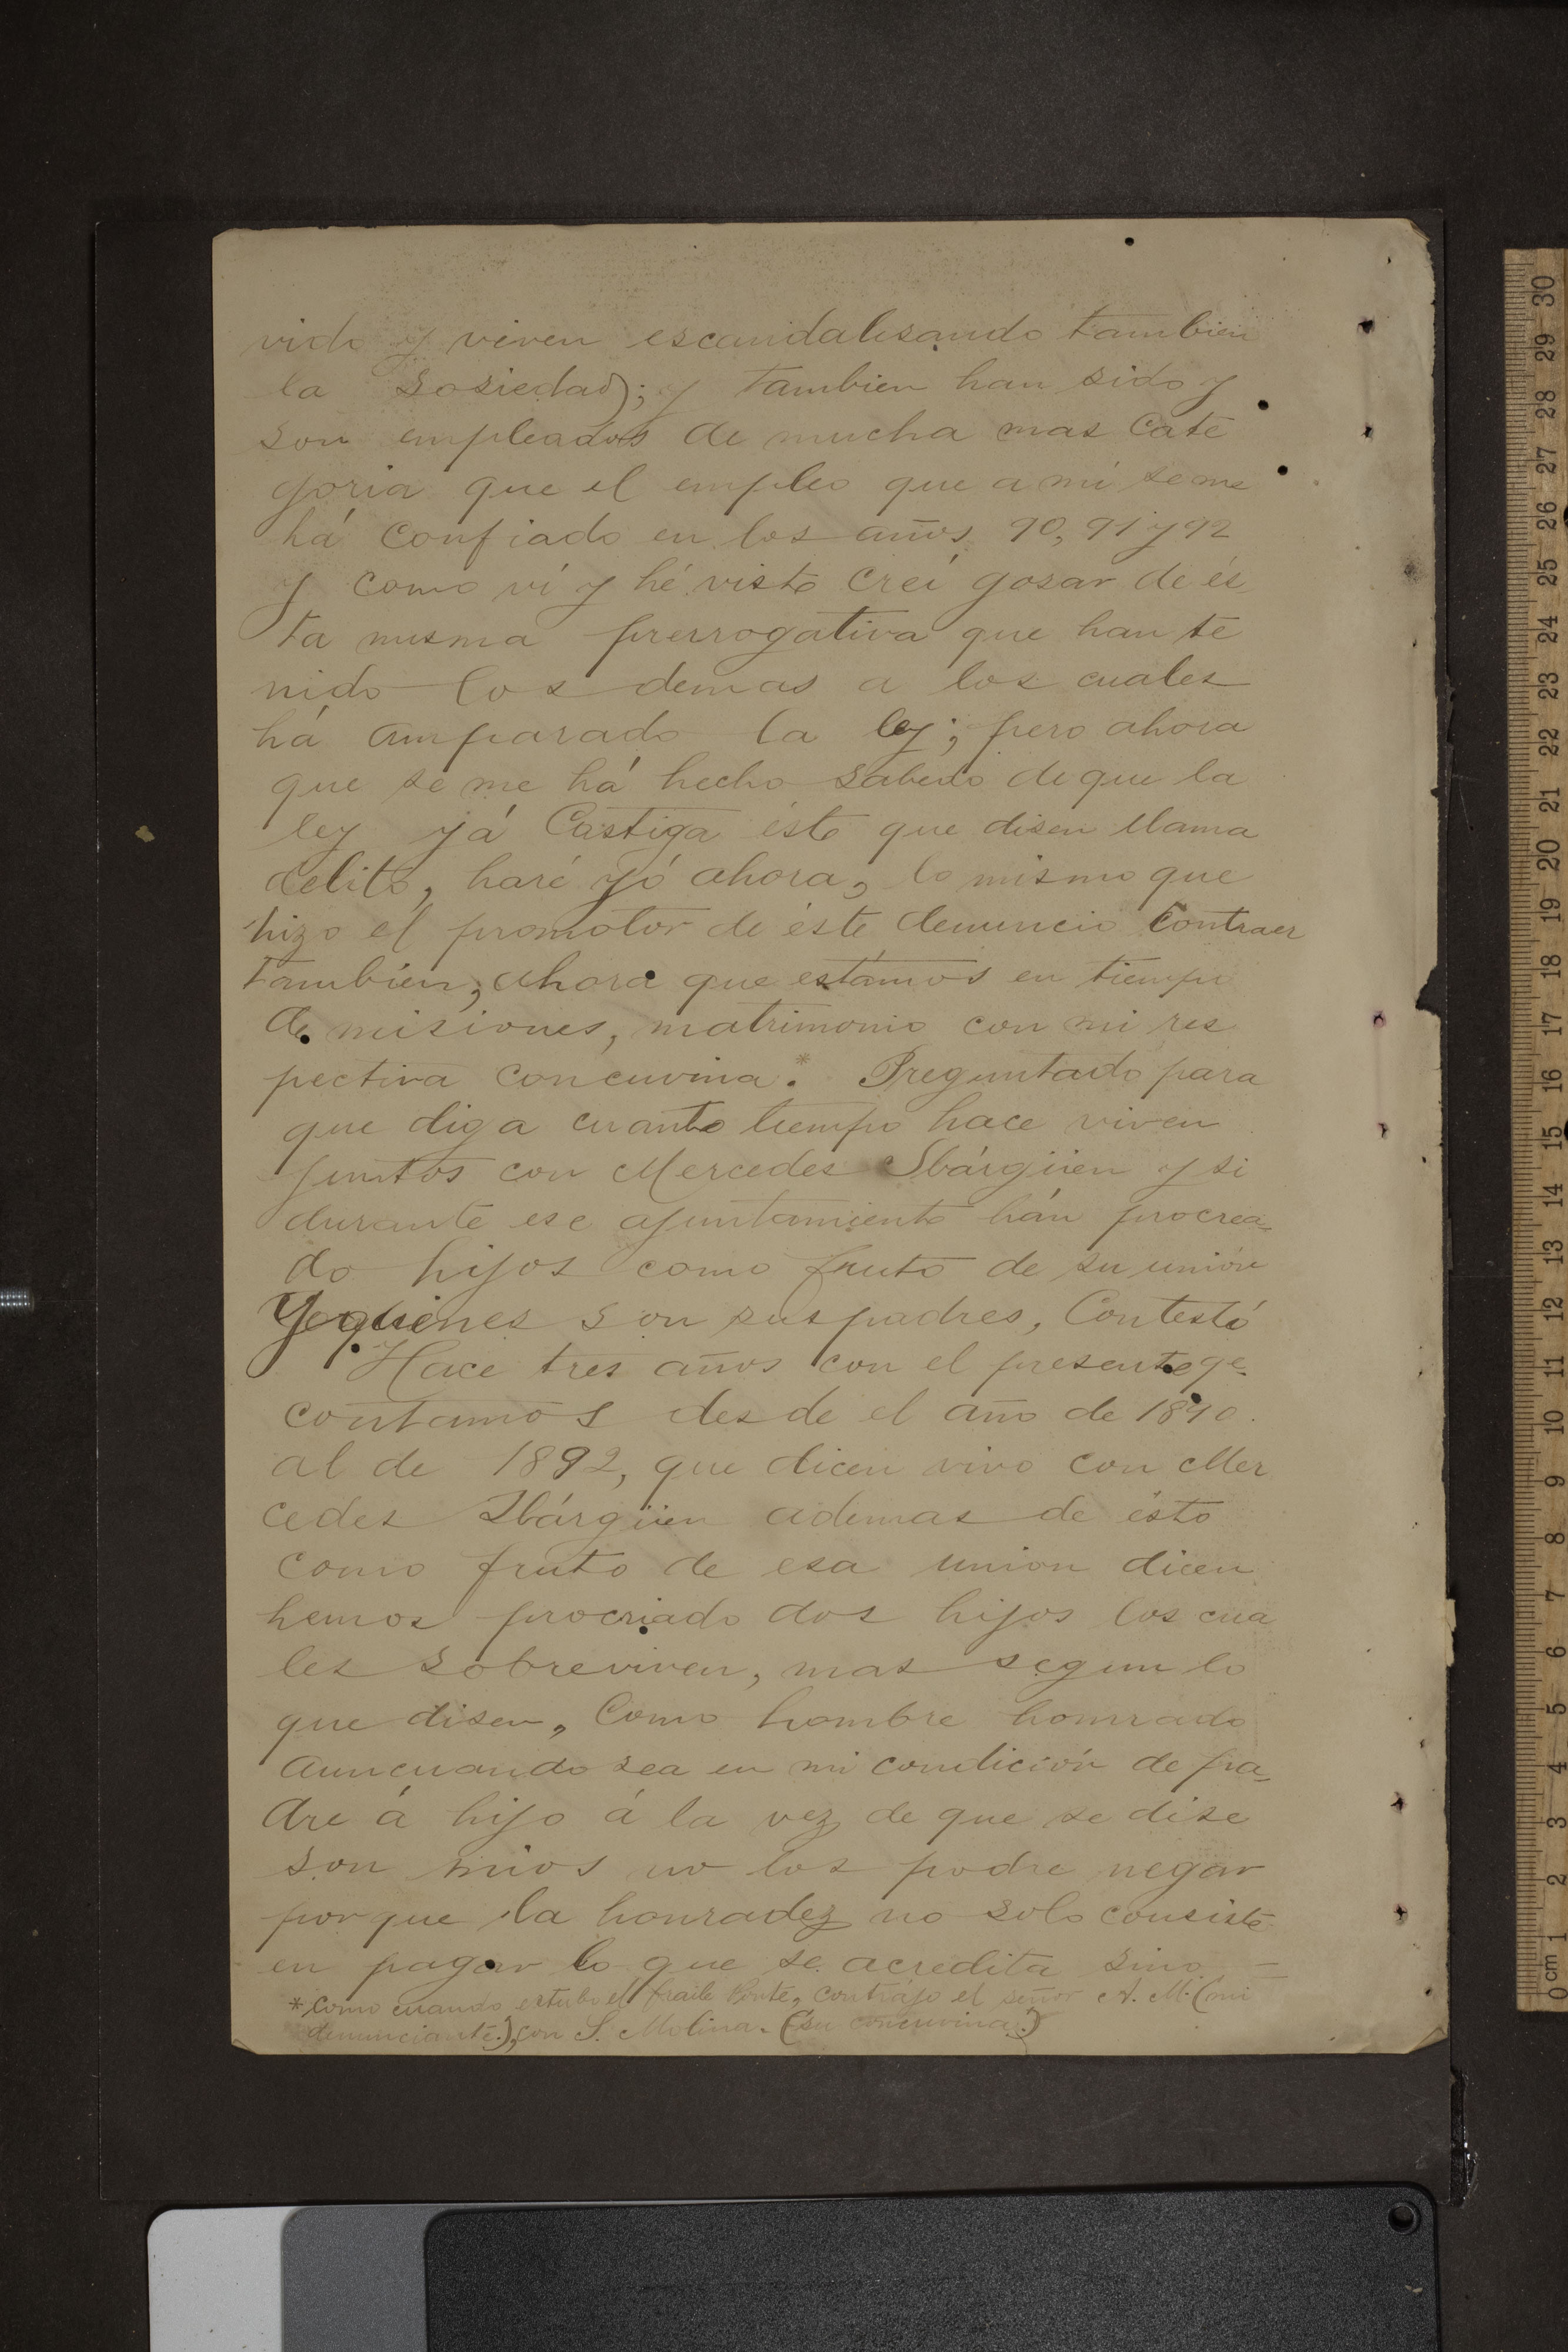 vido y viven escandalisando tambien
la sosiedad); y tambien han sido y
son empleados de mucha mas cate
goria que el empleo que a mi se me
há confiado en los años 90, 91 y 92
y como ví y hé visto creí gosar de és
ta misma prerrogativa que han te
nido los demas a los cuales
há amparado la ley; pero ahora
que se me há hecho sabedo de que la
ley yá Castiga ésto que disen llama
delito, haré yó ahora, lo mismo que
hizo el promotor de éste denuncio contraer
tambien, ahora que estámos en tiempo
de misiones, matrimonio con mi res
pectiva concuvina.* Preguntado para
que diga cuanto tiempo hace viven
juntos con Mercedes Ibárgüen y si
durante ese ajuntamiento hán procrea-
do hijos como fruto de su unión
Y quienes son sus padres, Contestó
Hace tres años con el presente qe.
contamos desde el año de 1890.
al de 1892, que dicen vivo con Mer
cedes Ibárgüen ademas de ésto
como fruto de esa union dicen
hemos procriado dos hijos los cua
les sobreviven, mas segun lo
que disen, Como hombre honrrado
aun cuando sea en mi condición de pa-
dre á hijo á la vez de que se dise
son mios no los podre negar
por que la honradez no solo consiste
en pagar lo que se acredita sino =
* como cuando estubo el fraile Ponte, contrájo el señor A. M. (mi
denunciante.), con S. Molina. (su concuvina.)